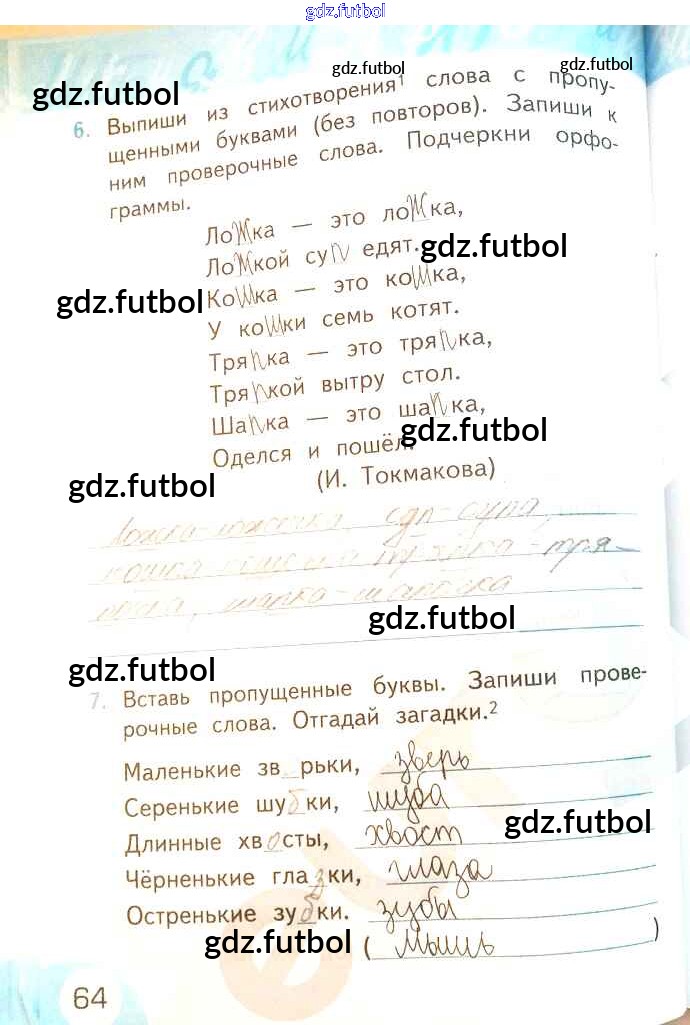 gdz.futbol
gdz.futbol
gdz.futbol
gdz.futbol
6. Выпиши из стихотворения¹ слова с пропу-
щенными буквами (без повторов). Запиши к
ним проверочные слова. Подчеркни орфо-
граммы.
Ложка — это ложка,
Ложкой суп едят.
gdz.futbol
Кошка — это кошка,
gdz.futbol
У кошки семь котят.
Тряпка — это тряпка,
Тряпкой вытру стол.
Шапка — это шапка,
Оделся и пошёл.
gdz.futbol
(И. Токмакова)
gdz.futbol
Ложка-ложечка, суп-супа,
тря-
шапка-шапочка
gdz.futbol
gdz.futbol
7. Вставь пропущенные буквы. Запиши прове-
рочные слова. Отгадай загадки.²
Маленькие зв рьки, зверь
Серенькие шубки, шуба
Длинные хвосты, хвост
gdz.futbol
Чёрненькие глазки, глаза
Остренькие зубки. зубы
gdz.futbol
(мышь)
64